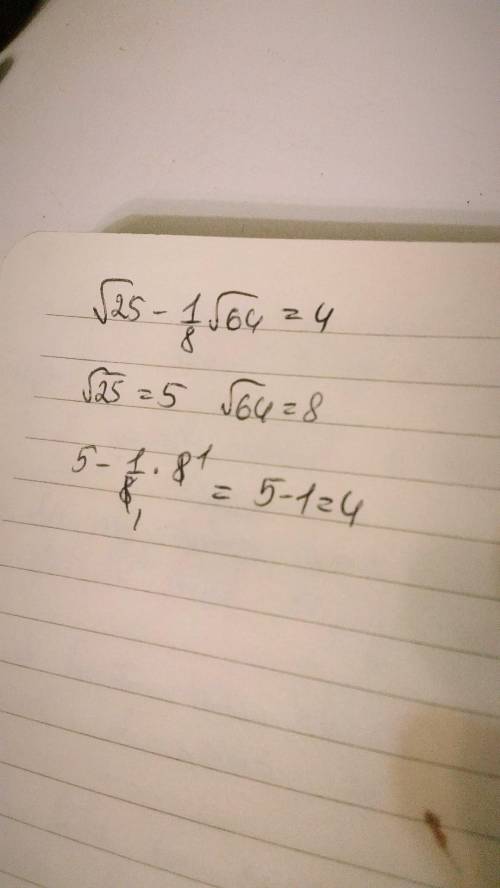 √25 - 1/8 √64 = 4
√25 = 5 √64 = 8
5 - 1/8 1 · 8 1 = 5-1=4